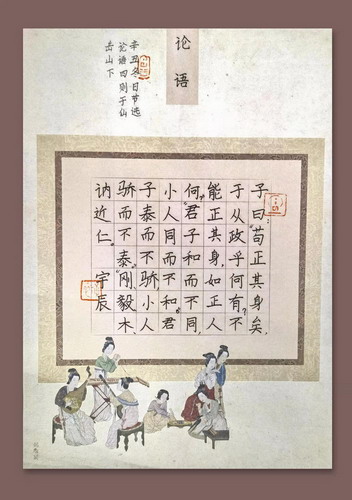 论语
辛丑冬日节选
论语四则于仙
岳山下
子曰：“苟正其身矣，
于从政乎何有？不
能正其身，如正人
何？”君子和而不同，
小人同而不和。君
子泰而不骄，小人
骄而不泰。刚毅木
讷近仁。宇辰